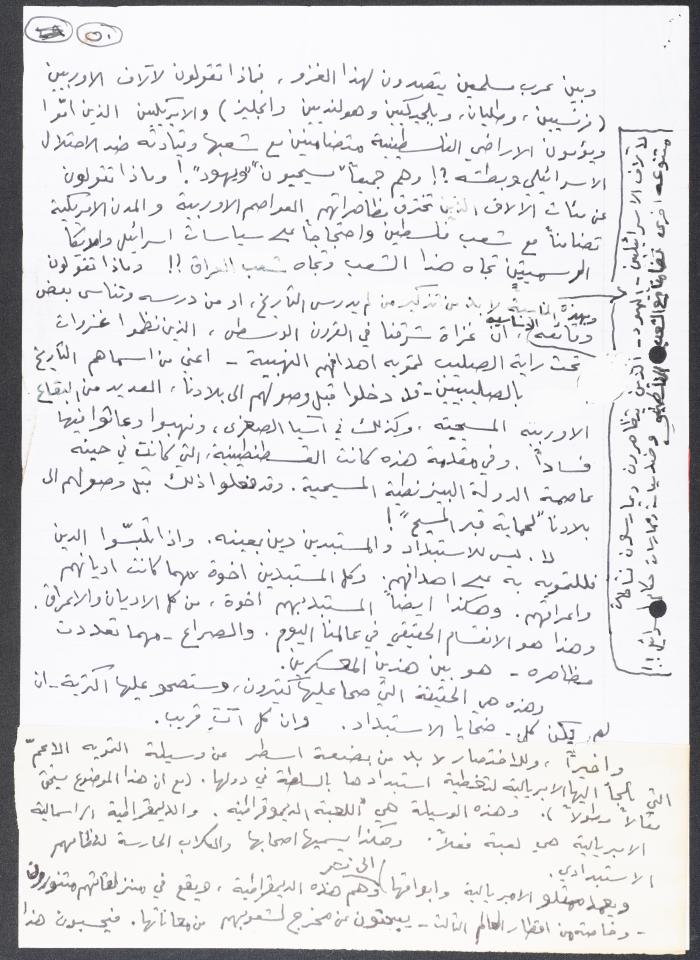 ٥١
وبين عرب مسلمين يتصدون لهذا الغزو، فماذا تقولون لآلاف الاوربيين
(فرنسيين، وطليان، وبلجيكيين وهولنديين وانجليز) والامريكيين الذين أتوا
ويؤمون الاراضي الفلسطينية متضامنين مع شعبها وقيادته ضد الاحتلال
الاسرائيلي وبطشه؟! وهم جميعاً "مسيحيون" "ويهود"! وماذا تقولون
عن مئات الالاف الذين تخترق تظاهراتهم العواصم الاوربية والمدن الامريكية
تضامناً مع شعب فلسطين واحتجاجاً على سياسات اسرائيل وامريكا
الرسميتين تجاه هذا الشعب وتجاه شعب العراق!! وماذا تقولون
لآلاف الاسرائيليين - اليهود - الذين يتظاهرون ويمارسون نشاطات
متنوعه اخرى تضامنا مع الشعب الفلسطيني وضد سياسات وممارسات حكام اسرائيل!!
وبهذه المناسبة لا بد من تذكير من لم يدرس التأريخ، او من درسه وتناسى بعض
وقائعه الاساسية، ان غزاة شرقنا في القرون الوسطى، الذين نظموا غزوات
تحت راية الصليب لتمويه اهدافهم النهبية - اعني من اسماهم التأريخ
بالصليبيين - قد دخلوا قبل وصولهم الى بلادنا، العديد من البقاع
الاوربية المسيحية، وكذلك في آسيا الصغرى، ونهبوا وعاثوا فيها
فساداً. وفي مقدمة هذه كانت القسطنطينية، التي كانت في حينه
عاصمة الدولة البيزنطية المسيحية. وقد فعلوا ذلك قبل وصولهم الى
بلادنا "لحماية قبر المسيح"!
لا. ليس للاستبداد والمستبدين دين بعينه. واذا تلبّسوا الدين
فللتمويه به على اهدافهم. وكل المستبدين اخوة مهما كانت اديانهم
واعراقهم. وهكذا ايضاً المستبد بهم اخوة، من كل الاديان والاعراق.
وهذا هو الانقسام الحقيقي في عالمنا اليوم. والصراع - مهما تعددت
مظاهره - هو بين هذين المعسكرين.
وهذه هي الحقيقة التي صحا عليها كثيرون، وستصحو عليها اكثرية - ان
لم يكن كل - ضحايا الاستبداد. وان كل آتٍ قريب.
واخيراً، وللاختصار لا بد من بضعة اسطر عن وسيلة التمويه الاعمّ
التي تلجأ اليها الامبريالية لتغطية استبدادها بالسلطة في دولها. (مع ان هذا الموضوع يستحق
مقالاً مطولاً). وهذه الوسيلة هي "اللعبة الديموقراطية. والديمقراطية الرأسمالية
الامبريالية هي لعبة فعلاً. وهكذا يسميها اصحابها والكلاب الحارسة لنظامهم
الاستبدادي.
ويعمد ممثلو الامبريالية وابواقها الى نشر وهم هذه الديمقراطية، ويقع في منزلقاتهم متنورون
- وخاصة من اقطار العالم الثالث - يبحثون عن مخرج لشعوبهم من معاناتها. فيحسبون هذا